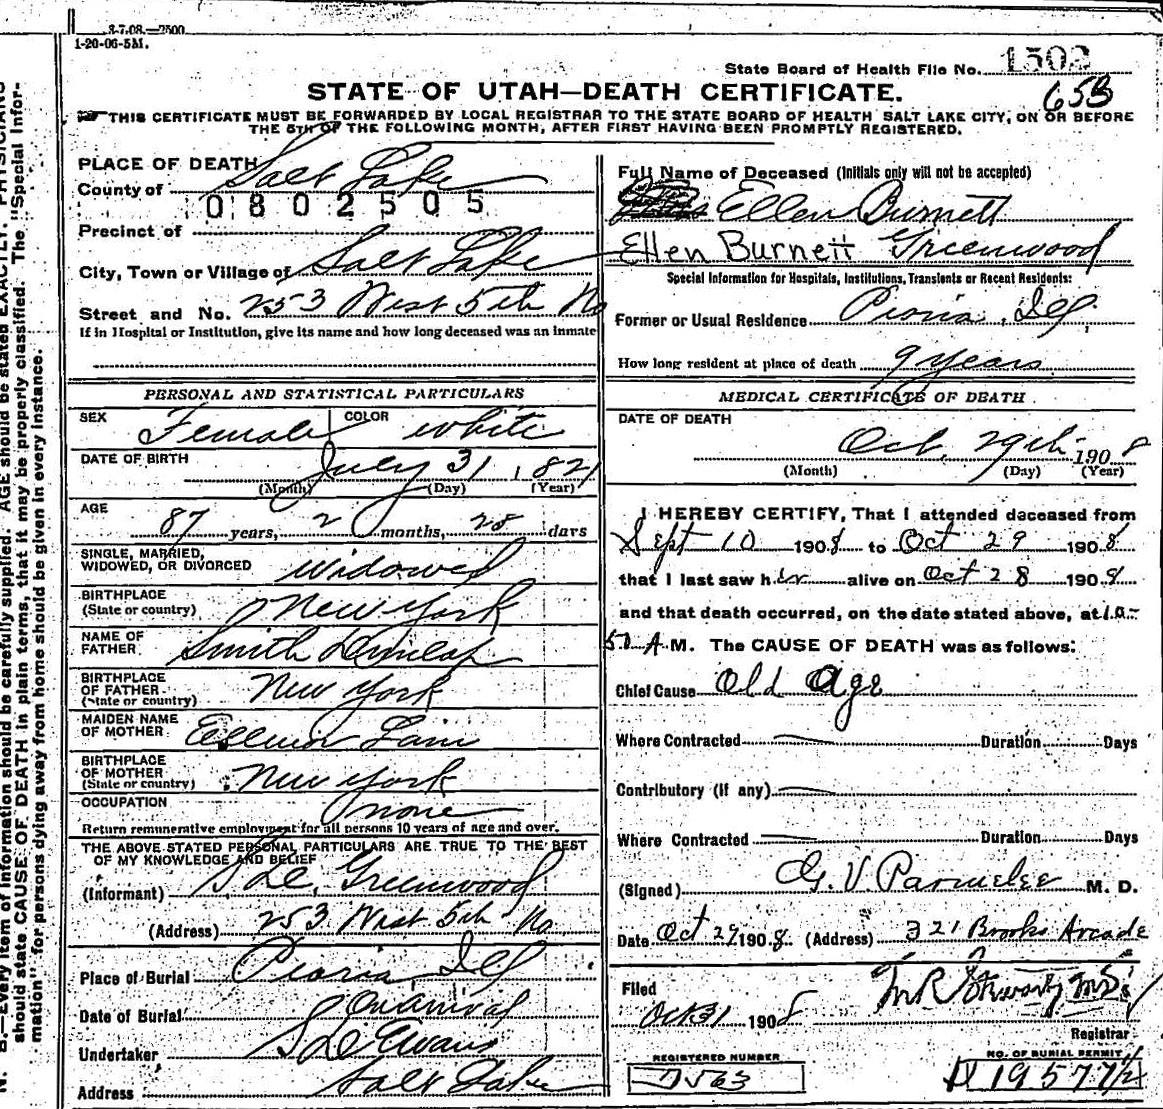 3-7-08.—2500
1-20-06-5M.
State Board of Health File No. 1502
653
STATE OF UTAH—DEATH CERTIFICATE.
THIS CERTIFICATE MUST BE FORWARDED BY LOCAL REGISTRAR TO THE STATE BOARD OF HEALTH SALT LAKE CITY, ON OR BEFORE
THE 5TH OF THE FOLLOWING MONTH, AFTER FIRST HAVING BEEN PROMPTLY REGISTERED.
PLACE OF DEATH
County of Salt Lake
0802505
Precinct of
City, Town or Village of Salt Lake
Street and No. 253 West 5th No
If in Hospital or Institution, give its name and how long deceased was an inmate
PERSONAL AND STATISTICAL PARTICULARS
SEX Female COLOR white
DATE OF BIRTH July 31, 1821
(Month) (Day) (Year)
AGE
87 years, 2 months, 28 days
SINGLE, MARRIED,
WIDOWED, OR DIVORCED widowed
BIRTHPLACE
(State or country) New York
NAME OF
FATHER Smith Dunlap
BIRTHPLACE
OF FATHER
(State or country) New York
MAIDEN NAME
OF MOTHER
BIRTHPLACE
OF MOTHER
(State or country) New York
OCCUPATION none
Return remunerative employment for all persons 10 years of age and over.
THE ABOVE STATED PERSONAL PARTICULARS ARE TRUE TO THE BEST
OF MY KNOWLEDGE AND BELIEF
(Informant) Greenwood
(Address) 253 West 5th No
Place of Burial Peoria Ill
Date of Burial
Undertaker Evans
Address Salt Lake
Full Name of Deceased (Initials only will not be accepted)
Ellen Burnett
Ellen Burnett Greenwood
Special Information for Hospitals, Institutions, Transients or Recent Residents:
Former or Usual Residence Peoria, Ill.
How long resident at place of death 9 years
MEDICAL CERTIFICATE OF DEATH
DATE OF DEATH
Oct. 29th 1908
(Month) (Day) (Year)
I HEREBY CERTIFY, That I attended deceased from
Sept 10 1908 to Oct 29 1908
that I last saw her alive on Oct 28 1908
and that death occurred, on the date stated above, at 10-
50 A.M. The CAUSE OF DEATH was as follows:
Chief Cause Old Age
Where Contracted Duration Days
Contributory (if any)
Where Contracted Duration Days
(Signed) G. V. Parmelee M. D.
Date Oct 29 1908 (Address) 321 Brooks Arcade
Filed
Oct 31 1908
Registrar
REGISTERED NUMBER
7563
NO. OF BURIAL PERMIT
19577 1/2
N. B.—Every item of information should be carefully supplied. AGE should be stated EXACTLY. PHYSICIANS
should state CAUSE OF DEATH in plain terms, that it may be properly classified. The "Special Infor-
mation" for persons dying away from home should be given in every instance.